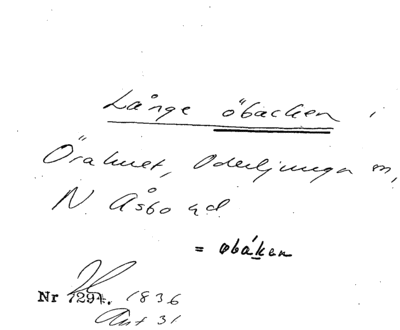 Långe öbacken i
Örahult, Oderljunga sn,
N. Åsbo hd
= obåken
Nr 7291. 1836
Ant 31